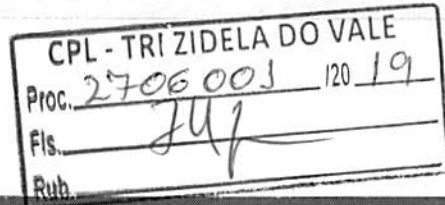 CPL - TRIZIDELA DO VALE
Proc. 2706001 /20 19
Fls.
Rub.